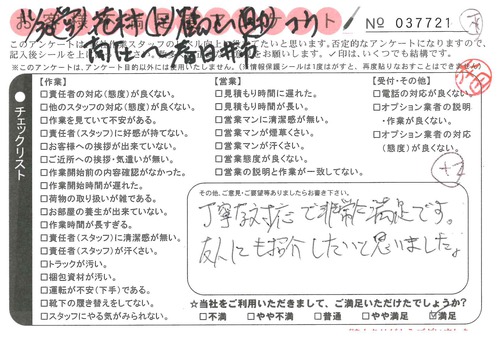 No 037721
このアンケートは
記入後シールを上
否定的なアンケートになりますので、
✓印は、いくつでも結構です。
※このアンケートは、アンケート目的以外には使用いたしません。(※情報保護シールは1度はがすと、再度貼りなおすことはできません)
チェックリスト
【作業】
□責任者の対応(態度)が良くない。
□他のスタッフの対応(態度)が良くない。
□作業を見ていて安心がある。
□責任者(スタッフ)に好感が持てない。
□お客様への挨拶が出来ていない。
□ご近所への挨拶・気遣いが無い。
□作業開始前の内容確認がなかった。
□作業開始時間が遅れた。
□荷物の取り扱いが雑である。
□お部屋の養生が出来ていない。
□作業時間が長すぎる。
□責任者(スタッフ)に清潔感が無い。
□責任者(スタッフ)が汗くさい。
□トラックが汚い。
□梱包資材が汚い。
□運転が不安(下手)である。
□靴下の履き替えをしてない。
□スタッフにやる気がみられない。
【営業】
□見積もり時間に遅れた。
□見積もり時間が長い。
□営業マンに清潔感が無い。
□営業マンが煙草くさい。
□営業マンが汗くさい。
□営業態度が良くない。
□営業の説明と作業が一致してない。
【受付・その他】
□電話の対応が良くない。
□オプション業者の説明
・作業が良くない。
□オプション業者の対応
(態度)が良くない。
+2
その他、ご意見・ご要望等ありましたらお書き下さい。
丁寧な対応で非常に満足です。
友人にも紹介したいと思いました。
☆当社をご利用いただきまして、ご満足いただけたでしょうか?
□不満 □やや不満 □普通 □やや満足 ☑満足